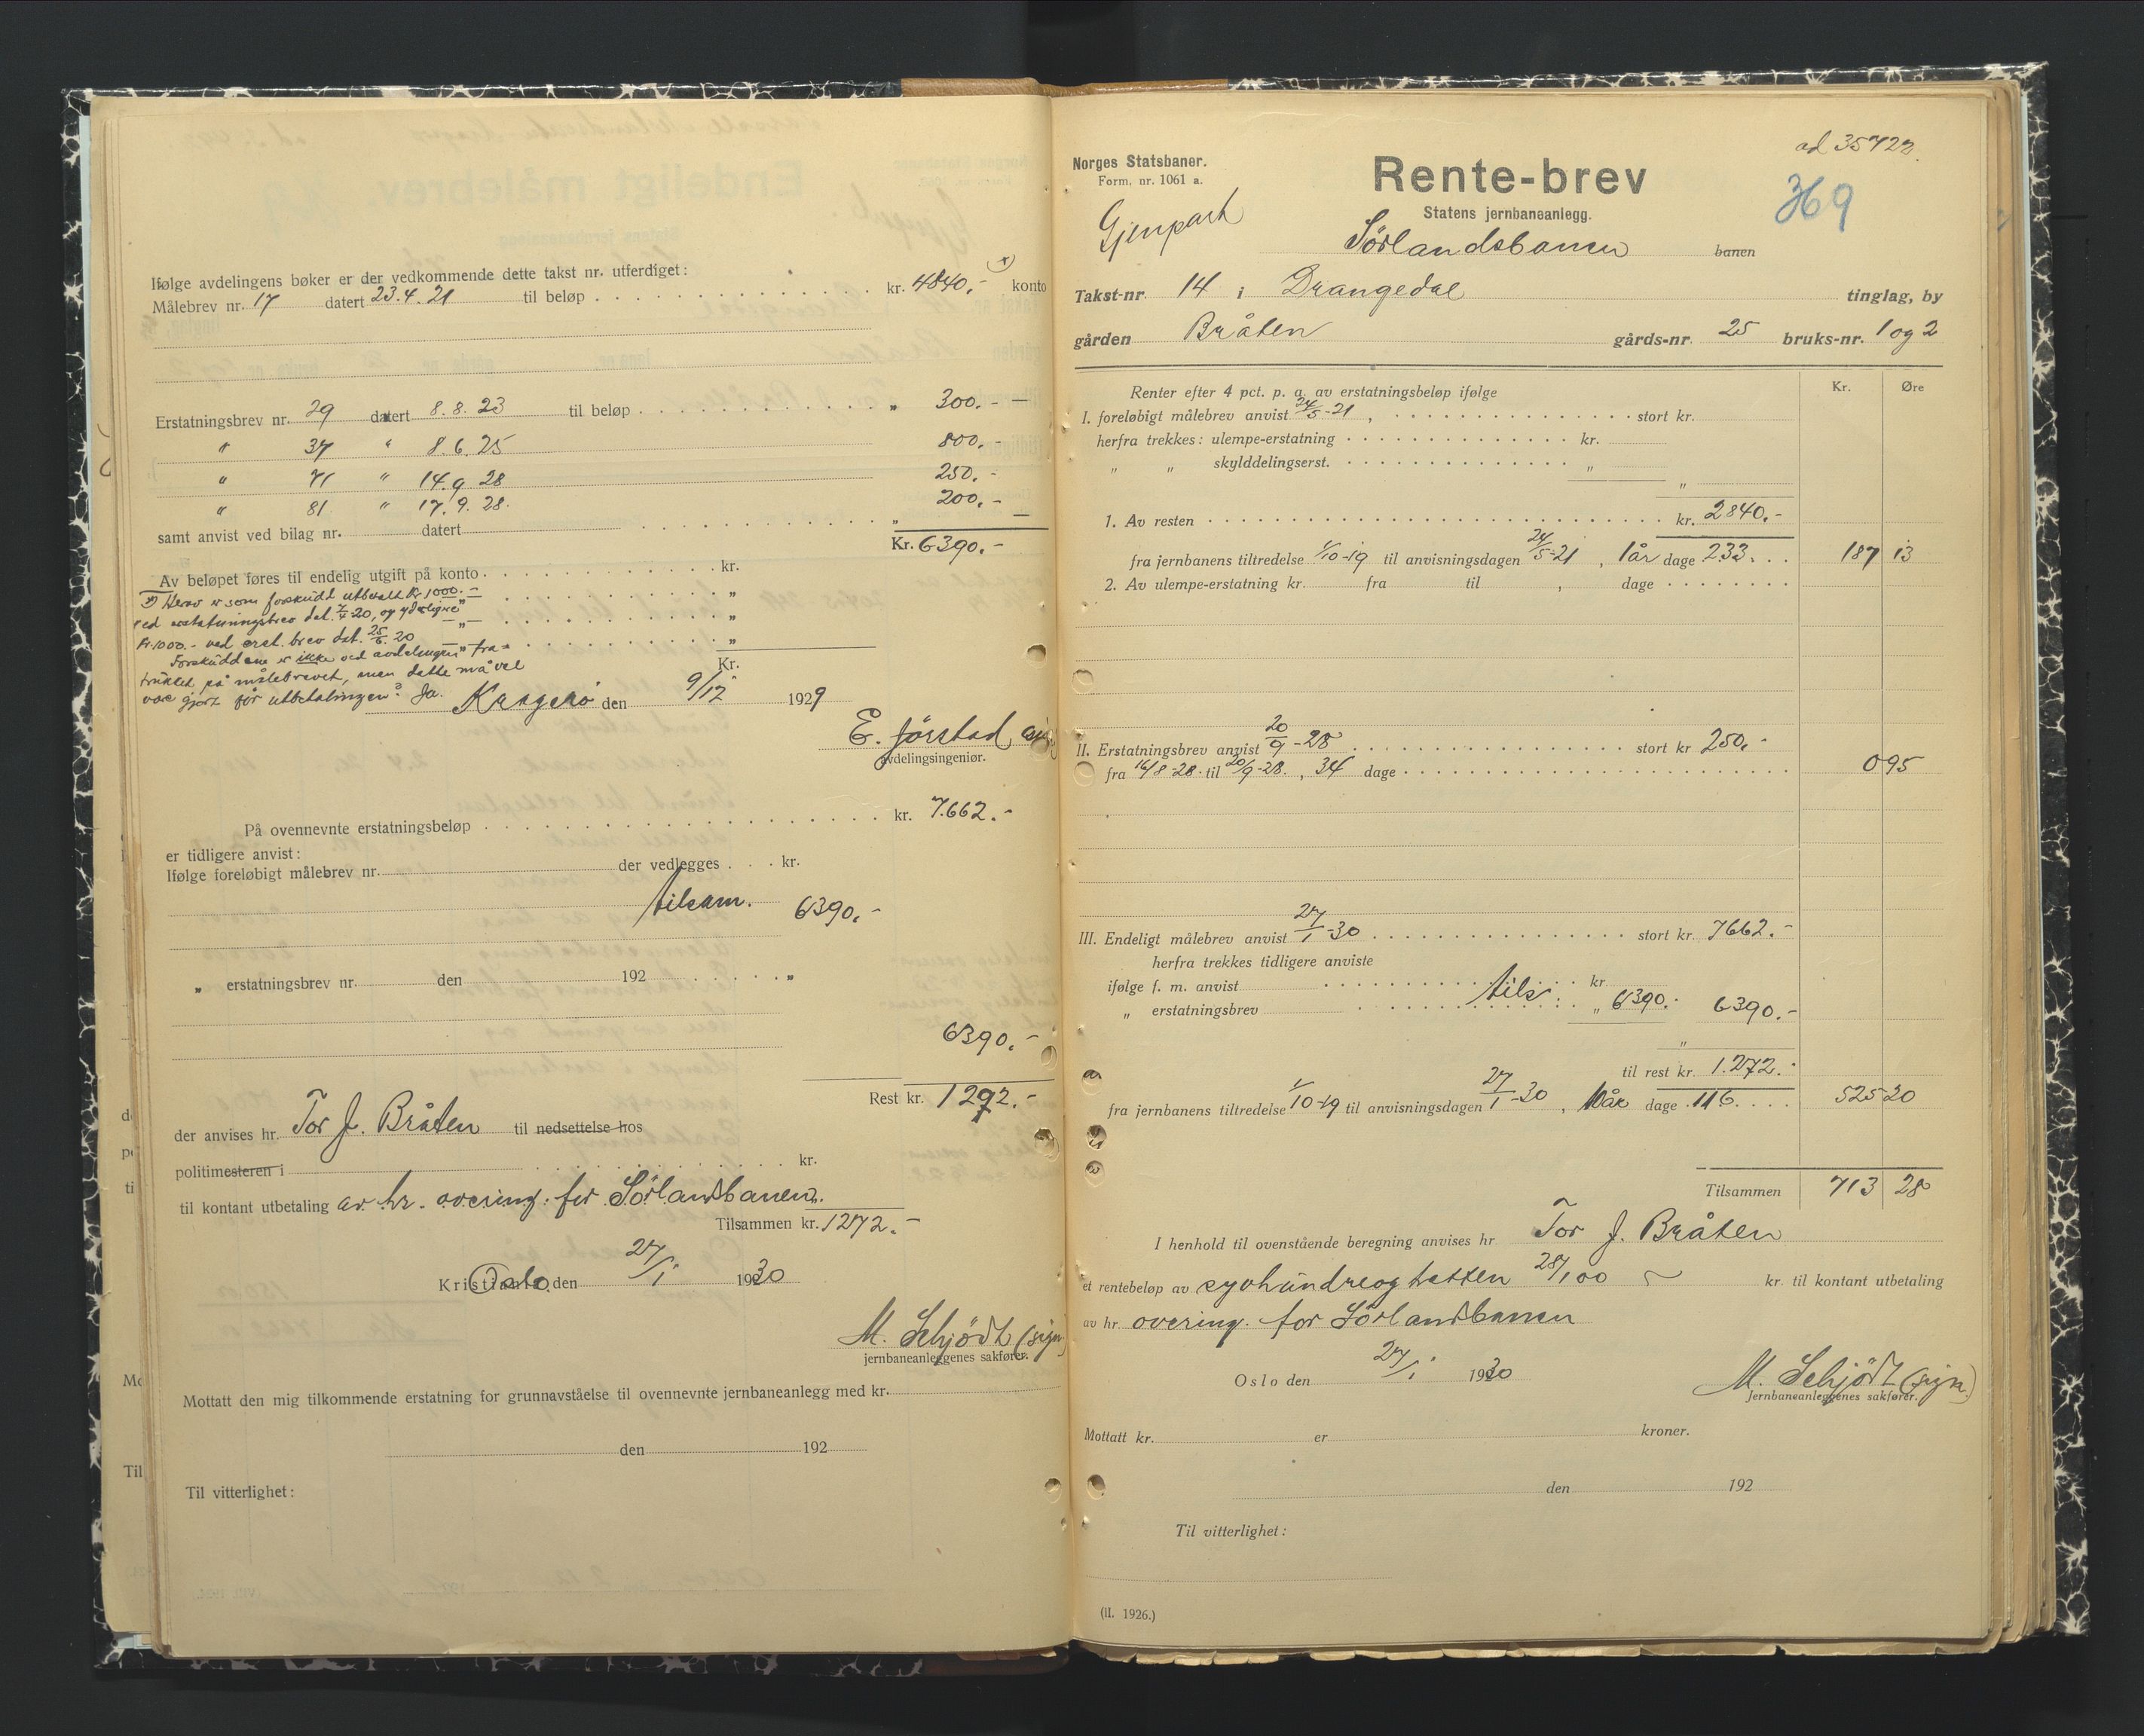 Ifølge avdelingens bøker er der vedkommende dette takst nr. utferdiget:
Målebrev nr. 17 datert 23.4.21 til beløp kr. 4840.- x) konto
Erstatningsbrev nr. 29 datert 8.8.23 til beløp „ 300.- —
" 37 " 8.6.25 800.-
" 71 " 14.9 28 250.-
" 81 " 17.9.28. 200.- —
samt anvist ved bilag nr. datert „
Kr. 6390.-
Av beløpet føres til endelig utgift på konto kr.
x) Herav er som forskudd utbetalt Kr 1000.- „
ved erstatningsbrev dat. 7/4-20, og yderligere „
Kr. 1000.- ved erst. brev dat. 25/6 20 „
Forskuddene er ikke ved avdelingen fra- Kr.
trukket på målebrevet, men dette må vel
være gjort før utbetalingen? Ja. Kragerø den 9/12 1929
E. Jørstad
avdelingsingeniør.
På ovennevnte erstatningsbeløp kr. 7.662.-
er tidligere anvist:
Ifølge foreløbigt målebrev nr. der vedlegges kr.
tilsam. 6390.-
„ erstatningsbrev nr. den 192 „
6390.-
Rest kr. 1272.-
der anvises hr. Tor J. Bråten til nedsettelse hos
politimesteren i kr.
til kontant utbetaling av hr. overing. for Sörlandsbanen.
Tilsammen kr. 1272.-
Kristiania Oslo den 27/1 1930
M. Schjödt (sign)
jernbaneanleggenes sakfører.
Mottatt den mig tilkommende erstatning for grunnavståelse til ovennevnte jernbaneanlegg med kr.
den 192
Til vitterlighet:
ad 35722.
Norges Statsbaner.
Form. nr. 1061 a.
Rente-brev
369
Gjenpart
Statens jernbaneanlegg.
Sörlandsbanen banen
Takst-nr. 14 i Drangedal tinglag, by
gården Bråten gårds-nr. 25 bruks-nr. 1 og 2
Kr. Øre
Renter efter 4 pct. p. a. av erstatningsbeløp ifølge
I. foreløbigt målebrev anvist 24/5-21, stort kr.
herfra trekkes: ulempe-erstatning kr.
„ „ skylddelingserst. „
„
1. Av resten kr. 2840.-
fra jernbanens tiltredelse 1/10-19 til anvisningsdagen 24/5-21, 1 år dage 233 187 13
2. Av ulempe-erstatning kr. fra til , dage
II. Erstatningsbrev anvist 20/9-28 stort kr 250.-
fra 16/8-28 til 20/9-28., 34 dage 0 95
III. Endeligt målebrev anvist 27/1-30 stort kr. 7662.-
herfra trekkes tidligere anviste
ifølge f. m. anvist kr.
„ erstatningsbrev tils. „ 6390.- 6390.-
„
til rest kr. 1.272.-
fra jernbanens tiltredelse 1/10-19 til anvisningsdagen 27/1-30, 10 år dage 116 525 20
Tilsammen 713 28
I henhold til ovenstående beregning anvises hr. Tor J. Bråten
et rentebeløp av syvhundreogtretten 28/100 kr. til kontant utbetaling
av hr. overing. for Sörlandsbanen
Oslo den 27/1 1930
M. Schjödt (sign.)
Jernbaneanleggenes sakfører.
Mottatt kr. er kroner.
den 192
Til vitterlighet:
(II. 1926.)